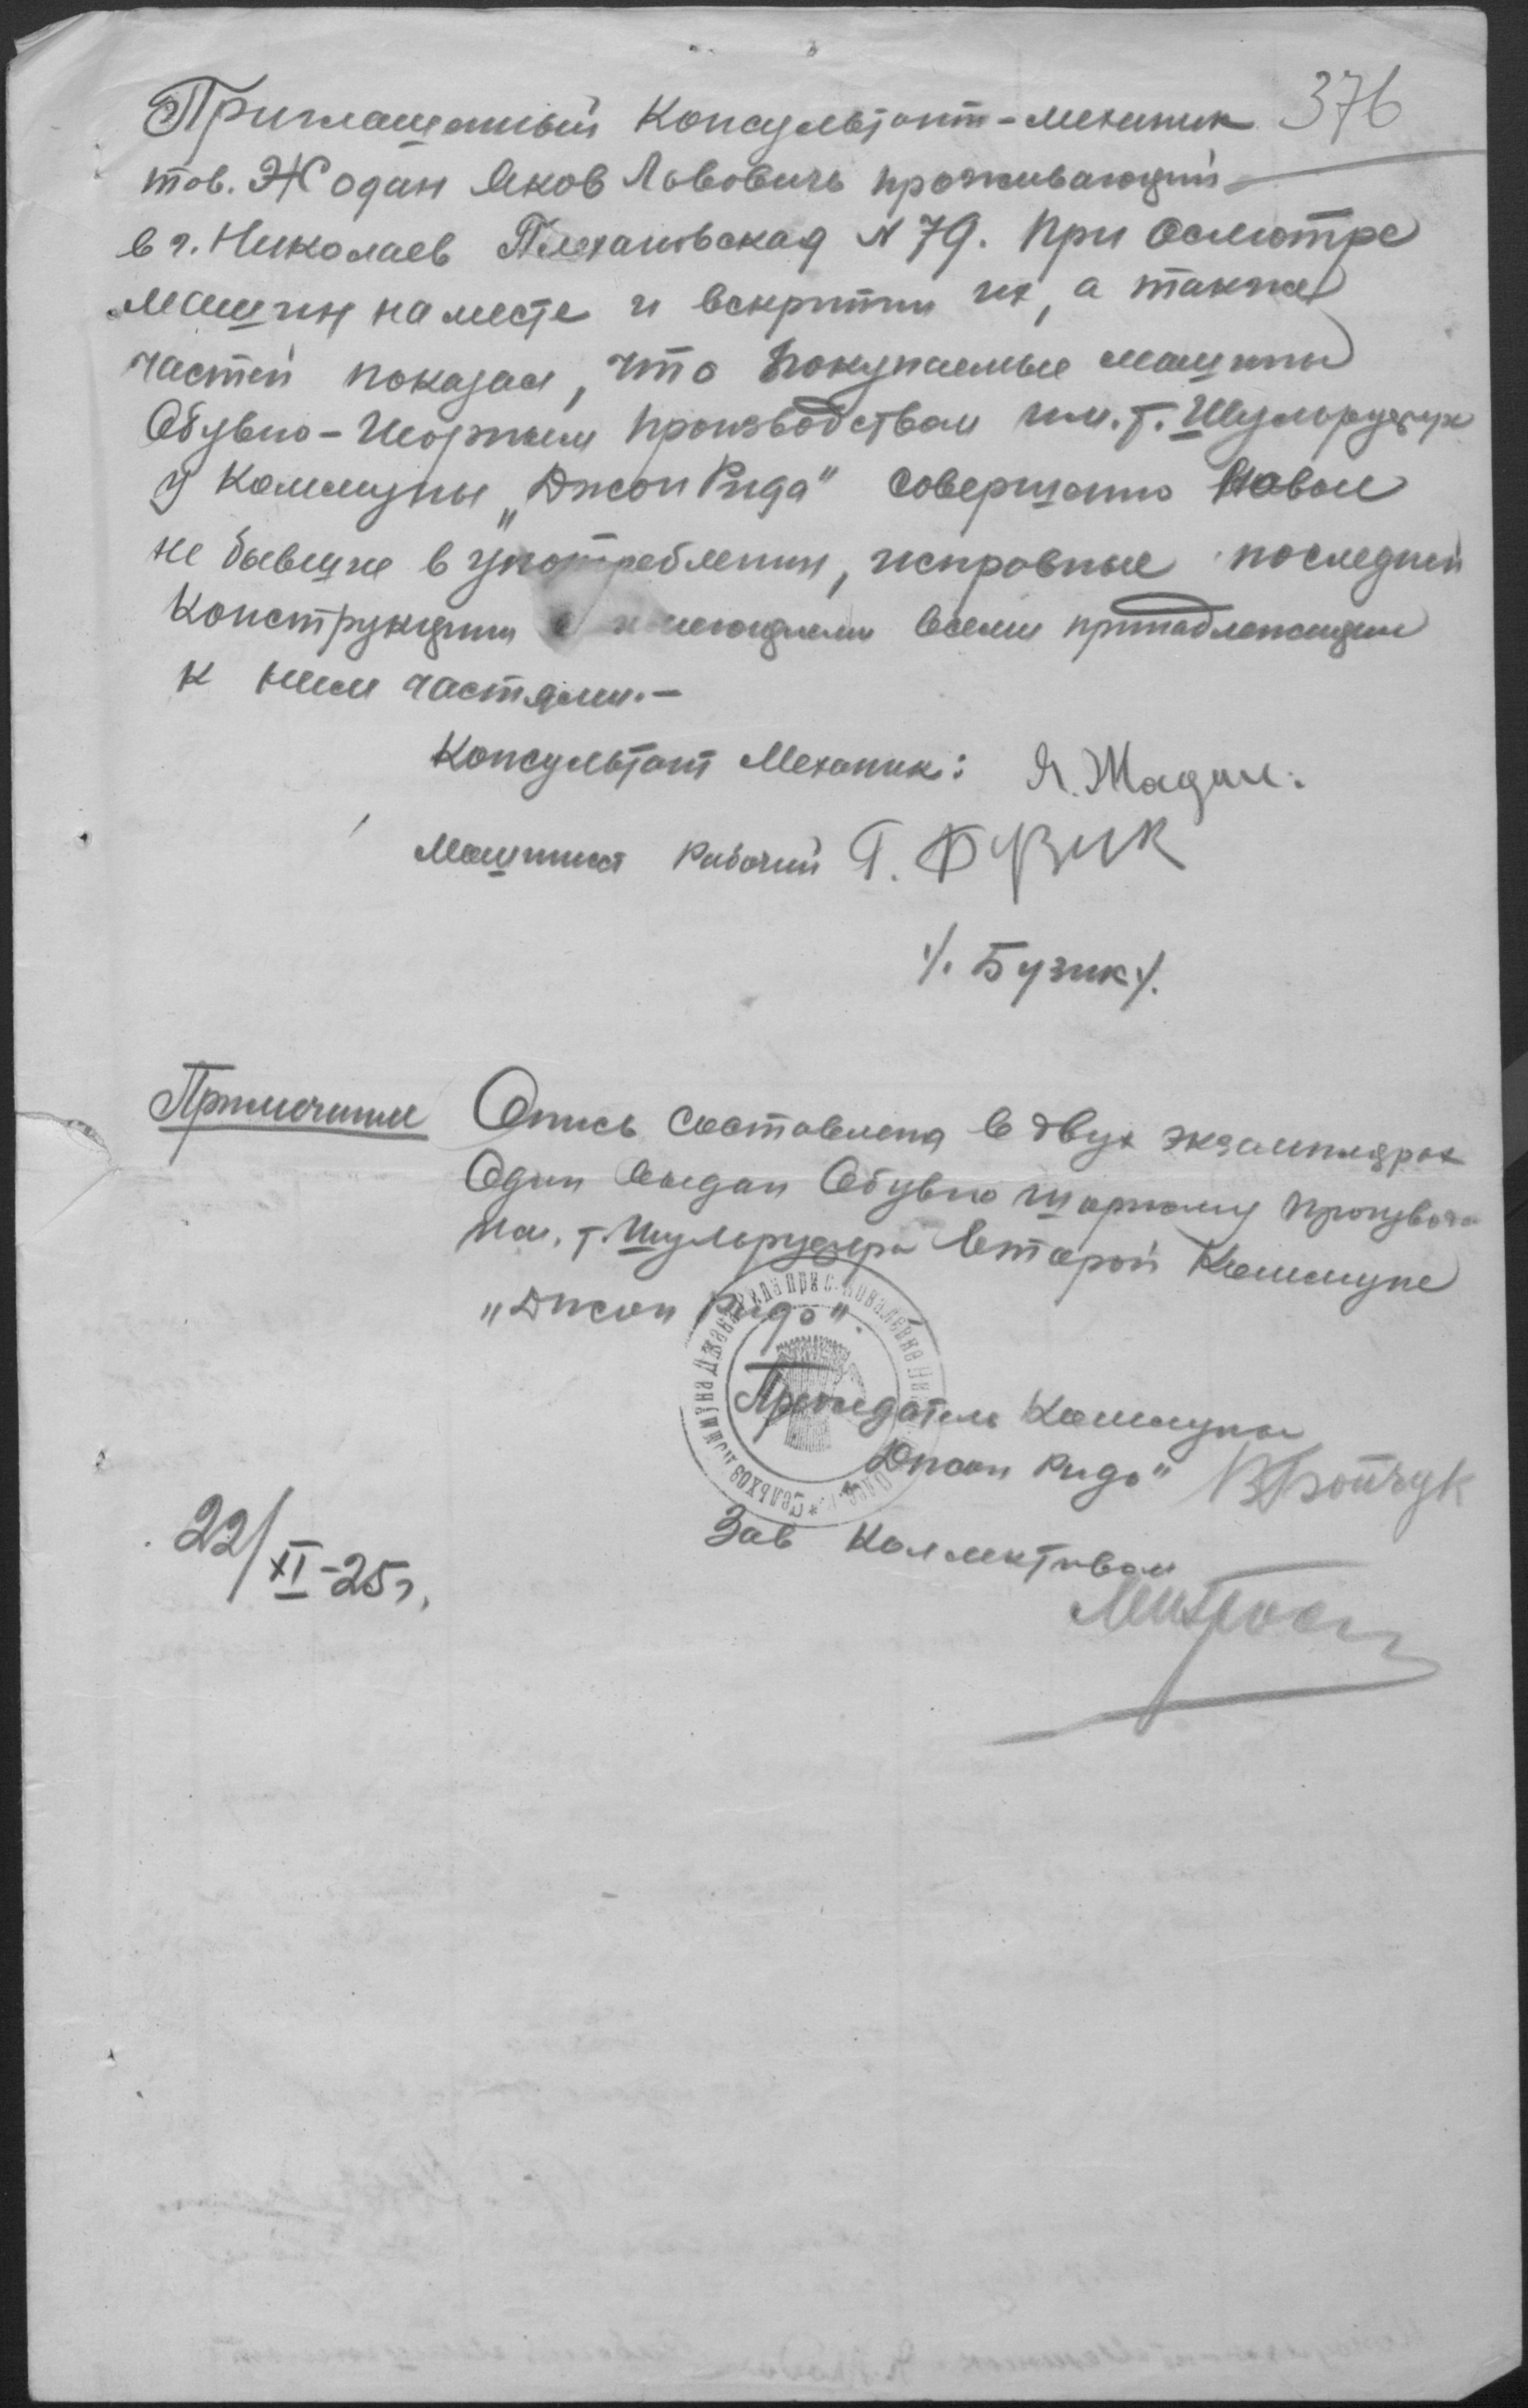 376
Приглашенный Консультант-механик
тов. Жодан Яков Львовичь проживающий
в г. Николаев Плехановская N 79. При Осмотре
машин на месте и вскритии их, а также
частей показал, что покупаемые машины
Обувно-Шорным производством им. т.
у Коммуны „Джон Рида" совершенно Новые
не бывшие в употреблении, исправные последней
Конструкции всеми принадлежащими
к ним частями.-
Консультант Механик: Я. Жадан.
Машинист Рабочий Г. Бузик
/. Бузик /.
Примечание Опись составлена в двух экземплярах
Один выдан Обувно шорному
им. т. Второй Коммуне
„Джон Рида".
Председатель Коммуны
„Джон Рида" Бойчук
Зав Коллективом
22/XI-25 г.
Сельхоз Коммуна Джона Рида при с. Ковалевке